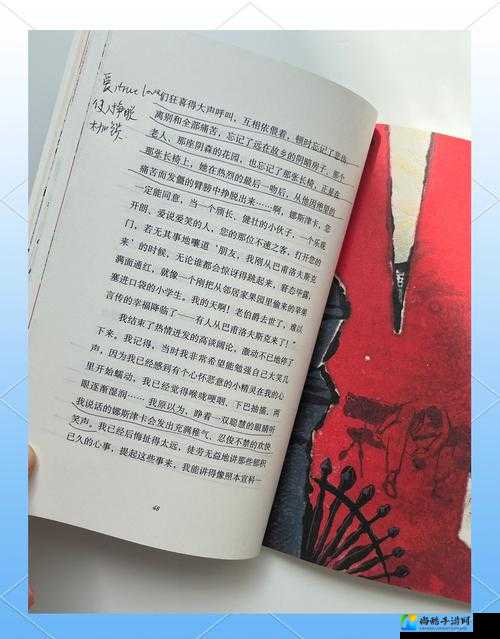 爱，true love
使人挣脱
枷锁
们狂喜得大声呼叫，互相依偎着，顿时忘记了悲伤、
离别和全部痛苦，忘记了远在故乡的阴暗房子、那个
老人、那座阴森的花园，也忘记了那张长椅，正是在
那张长椅上，她在热烈的最后一吻后，从他因绝望的
痛苦而发僵的臂膀中挣脱出来……啊，娜斯津卡，您
一定能同意，当一个颀长、健壮的小伙子，一个乐天
开朗、爱说爱笑的人，您的那位不速之客，打开您的
门，若无其事地嚷道‘朋友，我刚从巴甫洛夫斯克
来’的时候，无论谁都会惊讶得跳起来，窘态毕露，
满面通红，就像一个刚把从邻居家果园里偷来的苹果
塞进口袋的小学生。我的天啊！老伯爵去世了，难以
言传的幸福降临了——有人从巴甫洛夫斯克来了！”
我结束了热情迸发的高谈阔论，激动不已地停了
下来。我记得，当时我非常希望能勉强自己大笑几
声，因为我已经感到有个心怀恶意的小精灵在我的心
里开始蠕动，我已经觉得喉咙哽咽、下巴抽搐，两
眼逐渐湿润……我原以为，睁着一双聪慧的眼睛听
我说话的娜斯津卡会发出充满稚气、忍俊不禁的欢快
笑声。我已经后悔扯得太远，徒劳无益地讲那些郁积
已久的心事，提起这些事来，我能讲得像照本宣科一
48
尚酷手游网